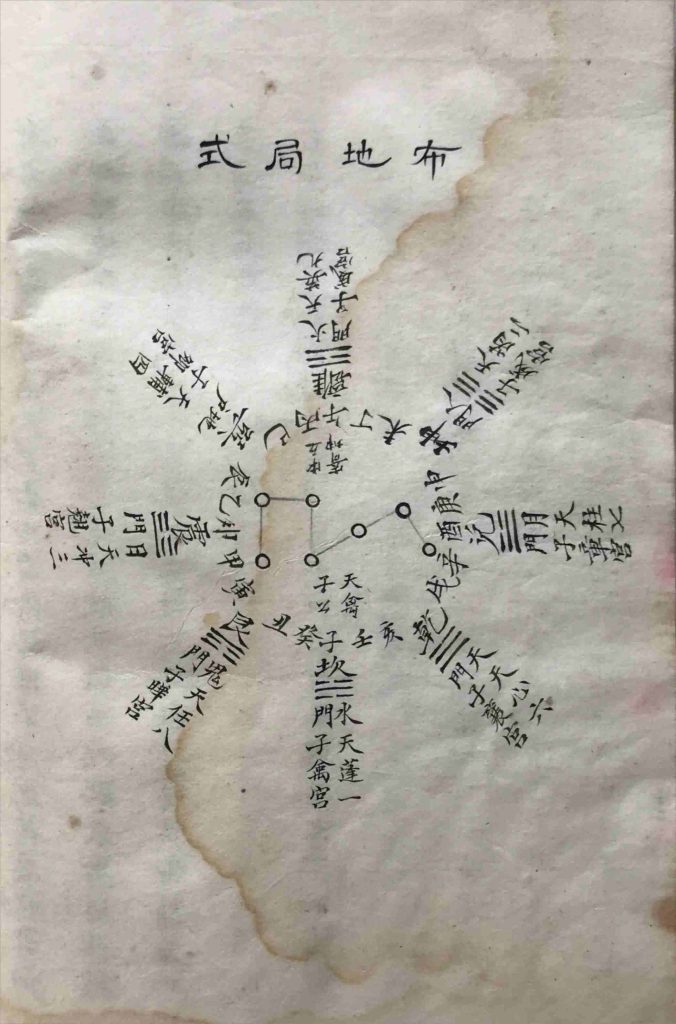 布地局式
火天英九
門子宮
離
午丙巳
丁未
坤
天
門子宮
申庚酉辛戌
兌
月天柱七
門子宮
乾
天天心六
門子襄宮
亥壬子癸丑
坎
水天蓬一
門子禽宮
艮
鬼天任八
門子曄宮
寅甲卯乙辰
震
日天冲三
門子翹宮
巽
地天輔四
户子宮
寄坤
中五
天禽
子公